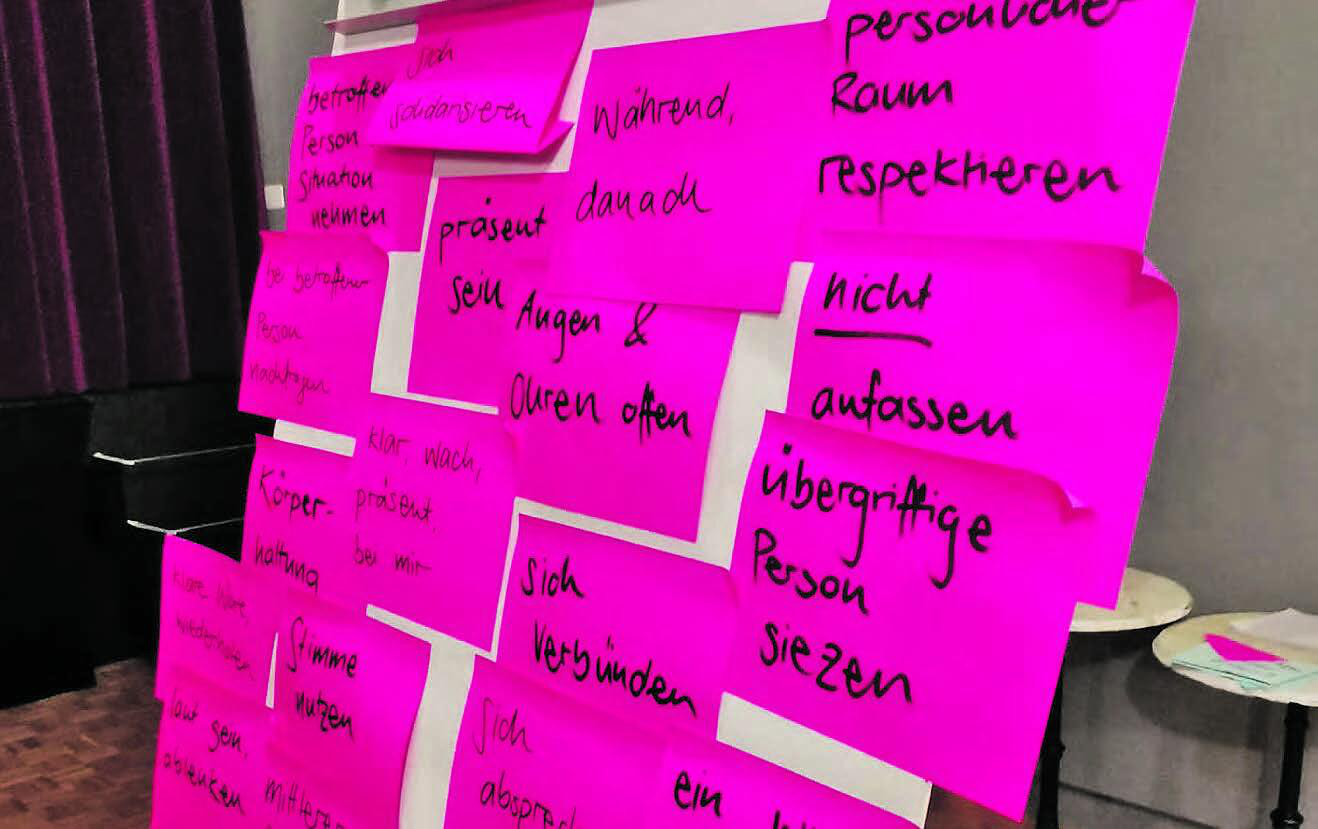 sich
solidarisieren
betroffen
Person
Situation
nehmen
Während,
danach
persönlicher
Raum
respektieren
präsent
sein
bei betroffener
Person
nachfragen
Augen &
Ohren offen
nicht
anfassen
klar, wach,
präsent,
bei mir
Körper-
haltung
übergriffige
Person
siezen
sich
Verbünden
klare Worte,
wiederholen
Stimme
nutzen
laut sein,
ablenken
mittlerer
sich
absprec
ein